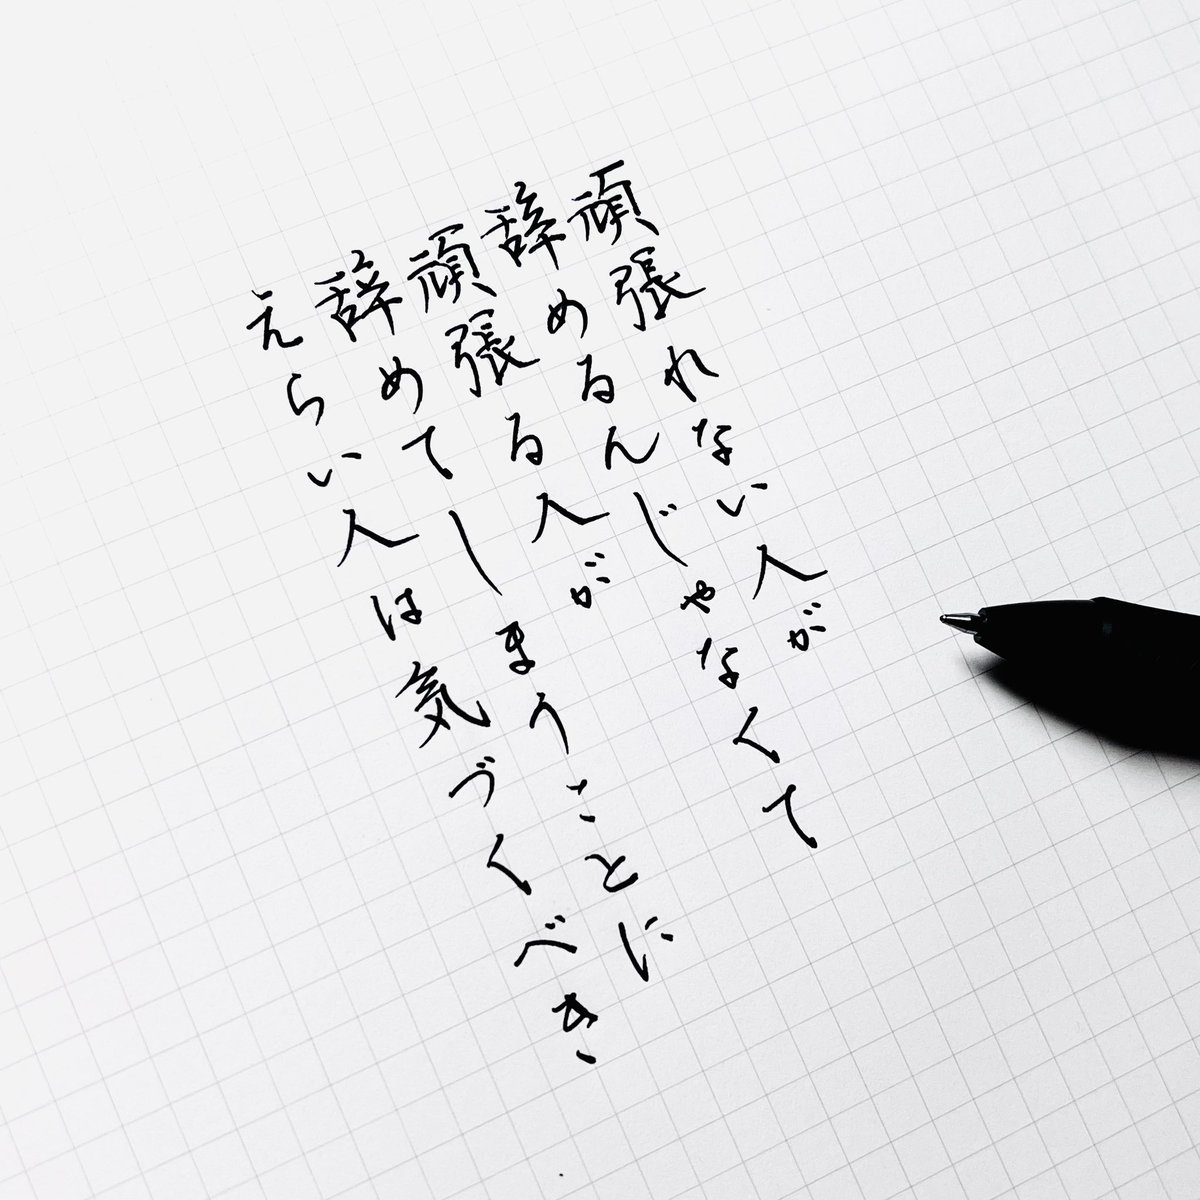 頑張れない人が
辞めるんじゃなくて
頑張る人が
辞めてしまうことに
えらい人は気づくべき